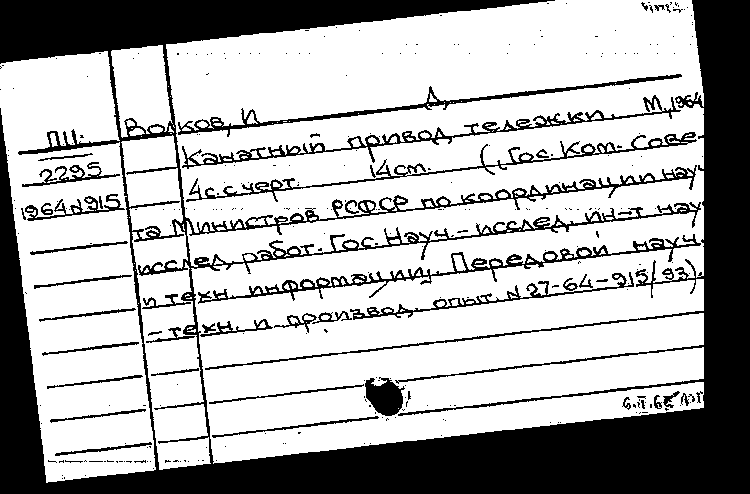 Д,
П11. Волков, И
2295 Канатный привод тележки. М, 1964
1964 N915 4с. с черт. 14см. (,Гос. Ком. Сове-
та Министров РСФСР по координации науч
исслед. работ. Гос. Науч.-исслед. ин-т нау
и техн. информации. Передовой науч.
-техн. и производ. опыт. N 27-64-915/93).
6.II.65